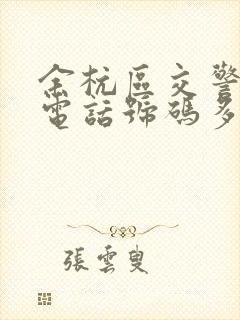 余杭區交警
電話號碼多
張雲叟